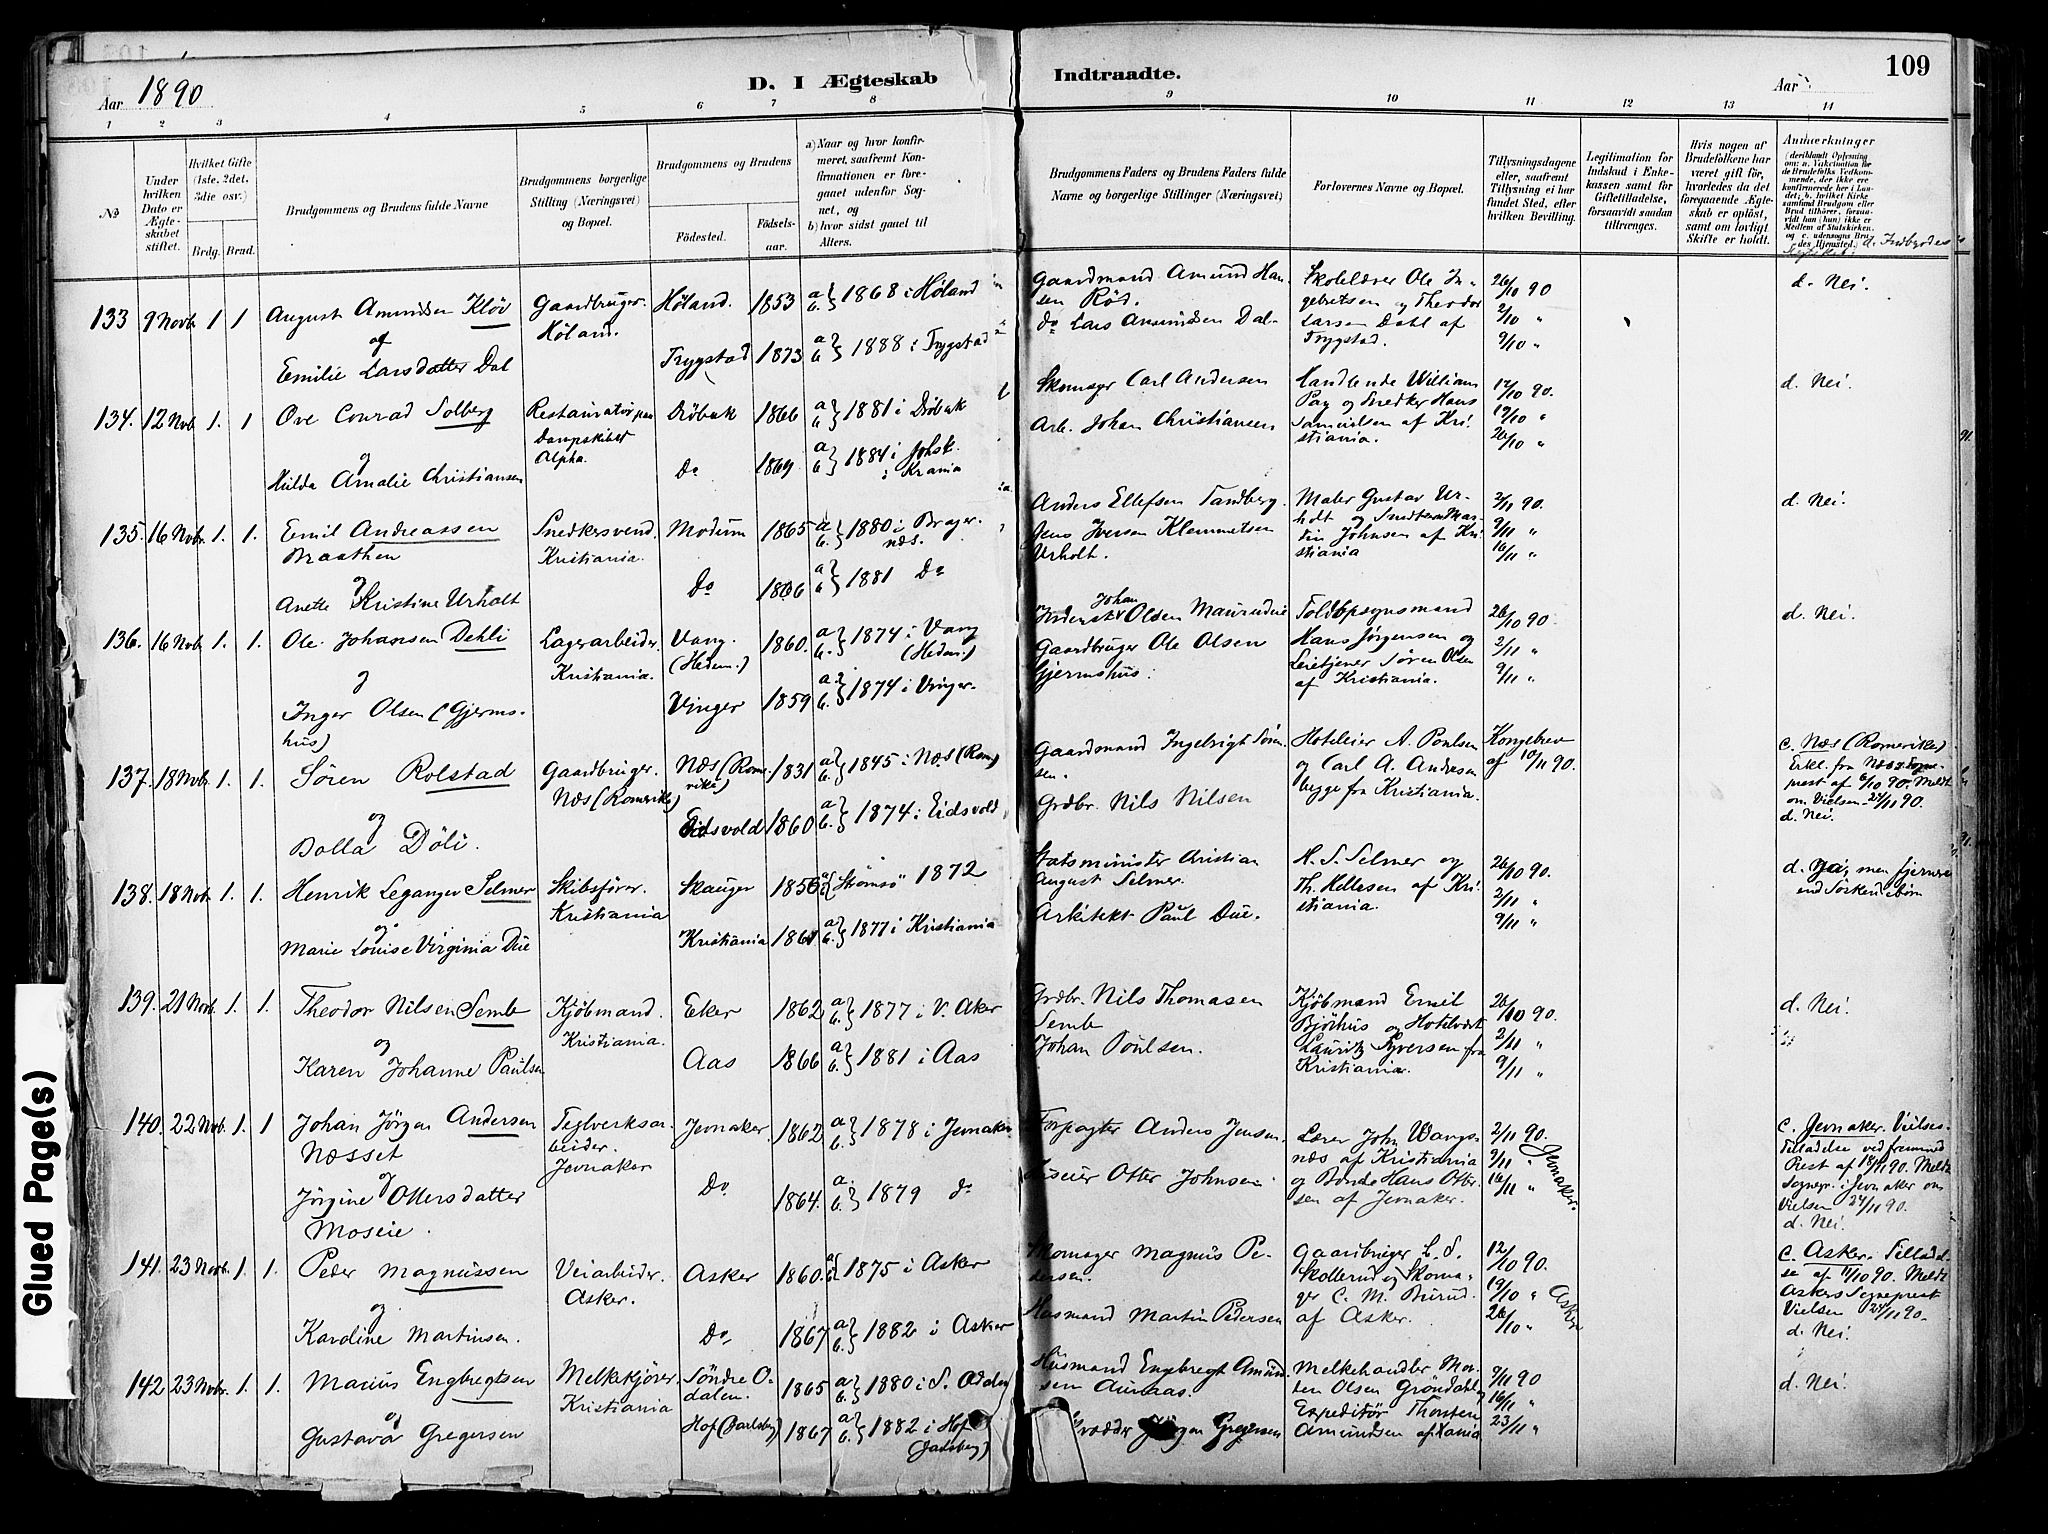 Aar 1890
D. I Ægteskab
Indtraadte.
Aar
109
1 2 3 4 5 6 7 8 9 10 11 12 13 14
№
Under hvilken Dato er Ægteskabet stiftet.
Hvilket Gifte (1ste, 2det, 3die osv.)
Brdg. Brud.
Brudgommens og Brudens fulde Navne
Brudgommens borgerlige Stilling (Næringsvei) og Bopæl.
Brudgommens og Brudens
Fødested.
Fødselsaar.
a) Naar og hvor konfirmeret, saafremt Konfirmationen er foregaaet udenfor Sognet, og
b) hvor sidst gaaet til Alters.
Brudgommens Faders og Brudens Faders fulde Navne og borgerlige Stillinger (Næringsvei)
Forlovernes Navne og Bopæl.
Tillysningsdagene eller, saafremt Tillysning ei har fundet Sted, efter hvilken Bevilling.
Legitimation for Indskud i Enkekassen samt for Giftetilladelse, forsaavidt saadan tiltrænges.
Hvis nogen af Brudefolkene har været gift før, hvorledes da det foregaaende Ægteskab er opløst, samt om lovligt Skifte er holdt.
Anmerkninger
(deriblandt Oplysning om: a. Vakcination for de Brudefolks Vedkommende, der ikke ere konfirmerede her i Landet; b. hvilket Kirkesamfund Brudgom eller Brud tilhører, forsaavidt han (hun) ikke er Medlem af Statskirken, og c. udensogns Brudes Hjemsted.)
133 9 Novb 1 1 August Amundsen Kløv Gaardbruger. Høland. Høland. 1853 a b } 1868 i Høland Gaardmand Amund Hansen Röd. Skolelærer Ole Ingebretsen og Theodor Larsen Dahl af Trygstad. 26/10 90 2/10 " 9/10 " d. Nei.
Emilie Larsdatter Dal Trygstad 1873 a b } 1888 i Trygstad do Lars Amundsen Dal
134. 12 Nvb 1. 1 Ove Conrad Solberg Restauratör paa Dampskibet Alpha. Dröbak 1866 a b } 1881 i Dröbak Skomager Carl Andersen Handlende William Pay og Snedker Hans Samuelsen af Kristiania. 12/10 90. 19/10 " 26/10 " d. Nei.
og
Hulda Amalie Christiansen Do 1869 a b } 1884 i Johsk. i Krania Arb. Johan Christiansen
135. 16 Nvbr. 1. 1. Emil Andreassen Braathen Snedkersvend. Kristiania. Modum 1865 a b } 1880 i Bragernæs. Anders Ellefsen Tandberg. Maler Gustav Urholt og Martin Johnsen af Kristiania 2/11 90. 9/11 " 16/11 " d. Nei.
og
Anette Kristine Urholt Do 1866 a b } 1881 Do Jens Iversen Klemmetsen Urholt.
136. 16 Nvb 1. 1. Ole Johansen Dehli Lagerarbeider. Kristiania. Vang. (Hedem.) 1860. a b } 1874 i Vang (Hedem.) Johan Olsen Toldopsynsmand Hans Jörgensen og Leietjener Sören Olsen af Kristiania. 26/10 90. 2/11 " 9/11 " d. Nei.
og
Inger Olsen (Gjermshus) Vinger 1859 a b } 1874 i Vinger. Gaardbruger Ole Olsen Gjermshus.
137. 18 Nvbr 1. 1. Sören Rolstad Gaardbruger. Næs (Romerike) Næs (Romerike) 1831 a b } 1845 i Næs (Rom) Gaardmand Ingebrigt Sörensen. Hoteleier A. Poulsen og Carl A. Andersen begge fra Kristiania. Kongebrev af 10/11 90. c. Næs (Romerike) Erkl. fra Næs Sogneprest af 6/10 90. Meldt om Vielsen 24/11 90. d. Nei.
og
Bolla Döli. Eidsvold 1860 a b } 1874 i Eidsvold Grdbr. Nils Nilsen
138. 18 Nvbr 1. 1. Henrik Leganger Selmer Skibsförer. Kristiania Skauger Strömsö 1872 Statsminister Christian August Selmer. H. S. Selmer og Th. Hellesen af Kristiania. 26/10 90. 2/11 " 9/11 " d. Ja; men fjernere end Söskendebörn
og
Marie Louise Virginia Due Kristiania 1861 a b } 1877 i Kristiania Arkitekt Paul Due.
139. 21 Nvbr. 1. 1. Theodor Nilsen Semb Kjöbmand. Kristiania. Eker 1862 a b } 1877 i V. Aker Grdbr. Nils Thomasen Semb Kjöbmand Emil Bjørhus og Hotelvært Lauritz Syversen fra Kristiania. 26/10 90. 2/11 " 9/11 " d. Nei.
og
Karen Johanne Paulsen Aas 1866 a b } 1881 i Aas Johan Poulsen.
140. 22 Nvb. 1. 1 Johan Jörgen Andersen Næsset Teglverksarbeider. Jevnaker Jevnaker. 1862 a b } 1878 i Jevnaker Forpagter Anders Jensen Lærer John Wangsnæs af Kristiania og Bonde Hans Ottersen af Jevnaker. 2/11 90. 9/11 " 16/11 " Jevnaker. c. Jevnaker. Vielses-Tilladelse ved fremmed Prest af 18/11 90. Meldt Sognepr. i Jevnaker om Vielsen 24/11 90. d. Nei.
og
Jörgine Ottersdatter Moseie. Do 1864. a. b. } 1879 do Otter Johnsen
141. 23 Novb. 1. 1. Peder Magnussen Veiarbeider. Asker. Asker 1860. 1875 i Asker Skomager Magnus Pedersen. Gaardbruger L. S. Skollerud og Skomager C. M. Burud. af Asker. 12/10 90. 19/10 " 26/10 " Asker c. Asker. Tilladelse af 11/10 90. Meldt Askers Sogneprest Vielsen 24/11 90. d. Nei.
og
Karoline Martinsen. Do, 1867 a b } 1882 i Asker Husmand Martin Pedersen
142 23 Nvbr. 1. 1. Marius Engbregtsen Melkekjörer. Kristiania Söndre Odalen. 1865 a b } 1880 i S. Odalen Husmand Engbregt Amundsen Aurnas. Melkehandler Morten Olsen Gröndahl og Expeditör Thorsten Amundsen af Xania 9/11 90 16/11 " 23/11 " d. Nei.
og
Gustava Gregersen Hof (Jarlsberg) 1867 a b } 1882 i Hof (Jarlsberg) Jörgen Gregersen
Glued Page(s)